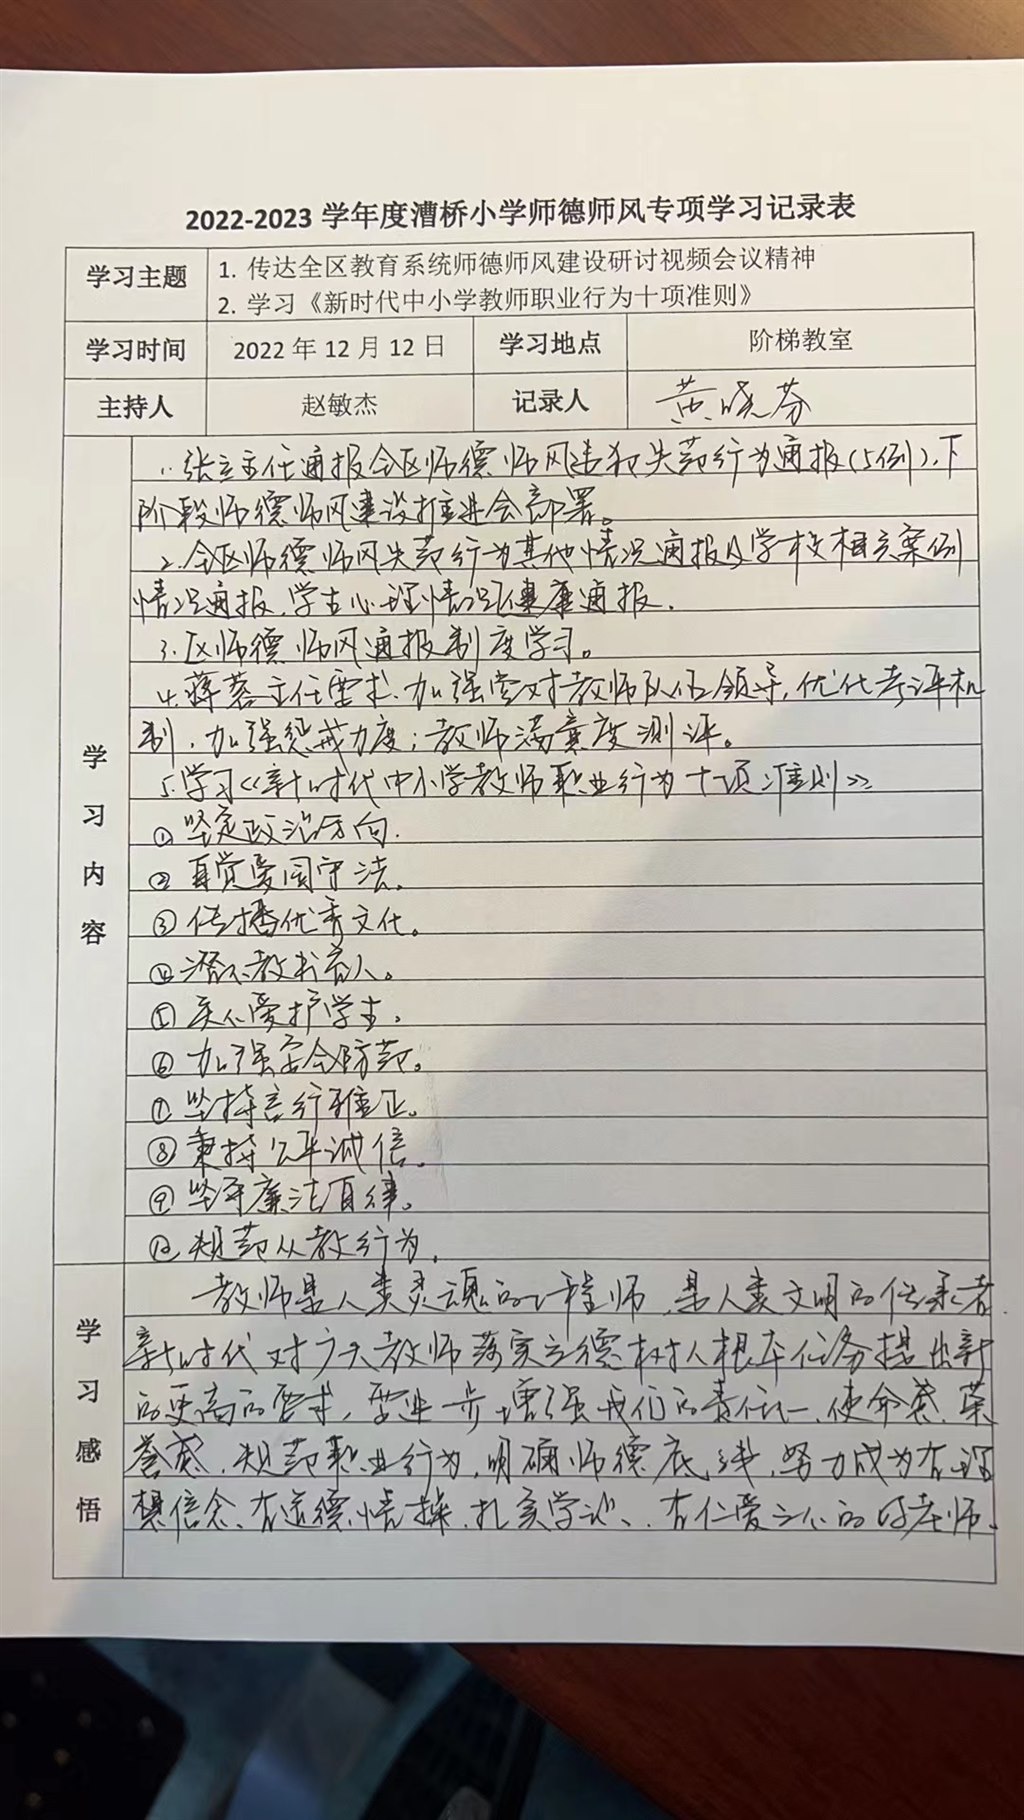 2022-2023 学年度漕桥小学师德师风专项学习记录表
学习主题
1. 传达全区教育系统师德师风建设研讨视频会议精神
2. 学习《新时代中小学教师职业行为十项准则》
学习时间 2022 年 12 月 12 日 学习地点 阶梯教室
主持人 赵敏杰 记录人 黄晓芬
学习内容
1. 张主任通报全区师德师风违犯失范行为通报(5例)、下
阶段师德师风建设推进会部署。
2. 全区师德师风失范行为其他情况通报及学校相关案例
情况通报、学生心理情况健康通报.
3. 区师德师风通报制度学习。
4. 蒋蓉主任要求、加强党对教师队伍领导,优化考评机
制、加强惩戒力度;教师满意度测评。
5. 学习《新时代中小学教师职业行为十项准则》
① 坚定政治方向.
② 自觉爱国守法。
③ 传播优秀文化。
④ 潜心教书育人。
⑤ 关心爱护学生.
⑥ 加强安全防范。
⑦ 坚持言行雅正。
⑧ 秉持公平诚信.
⑨ 坚守廉洁自律。
⑩ 规范从教行为.
学习感悟
教师是人类灵魂的工程师,是人类文明的传承者.
新时代对广大教师落实立德树人根本任务提出新
的更高的要求,要进一步增强我们的责任、使命感、荣
誉感,规范职业行为,明确师德底线,努力成为有理
想信念、有道德情操、扎实学识、有仁爱之心的好老师.